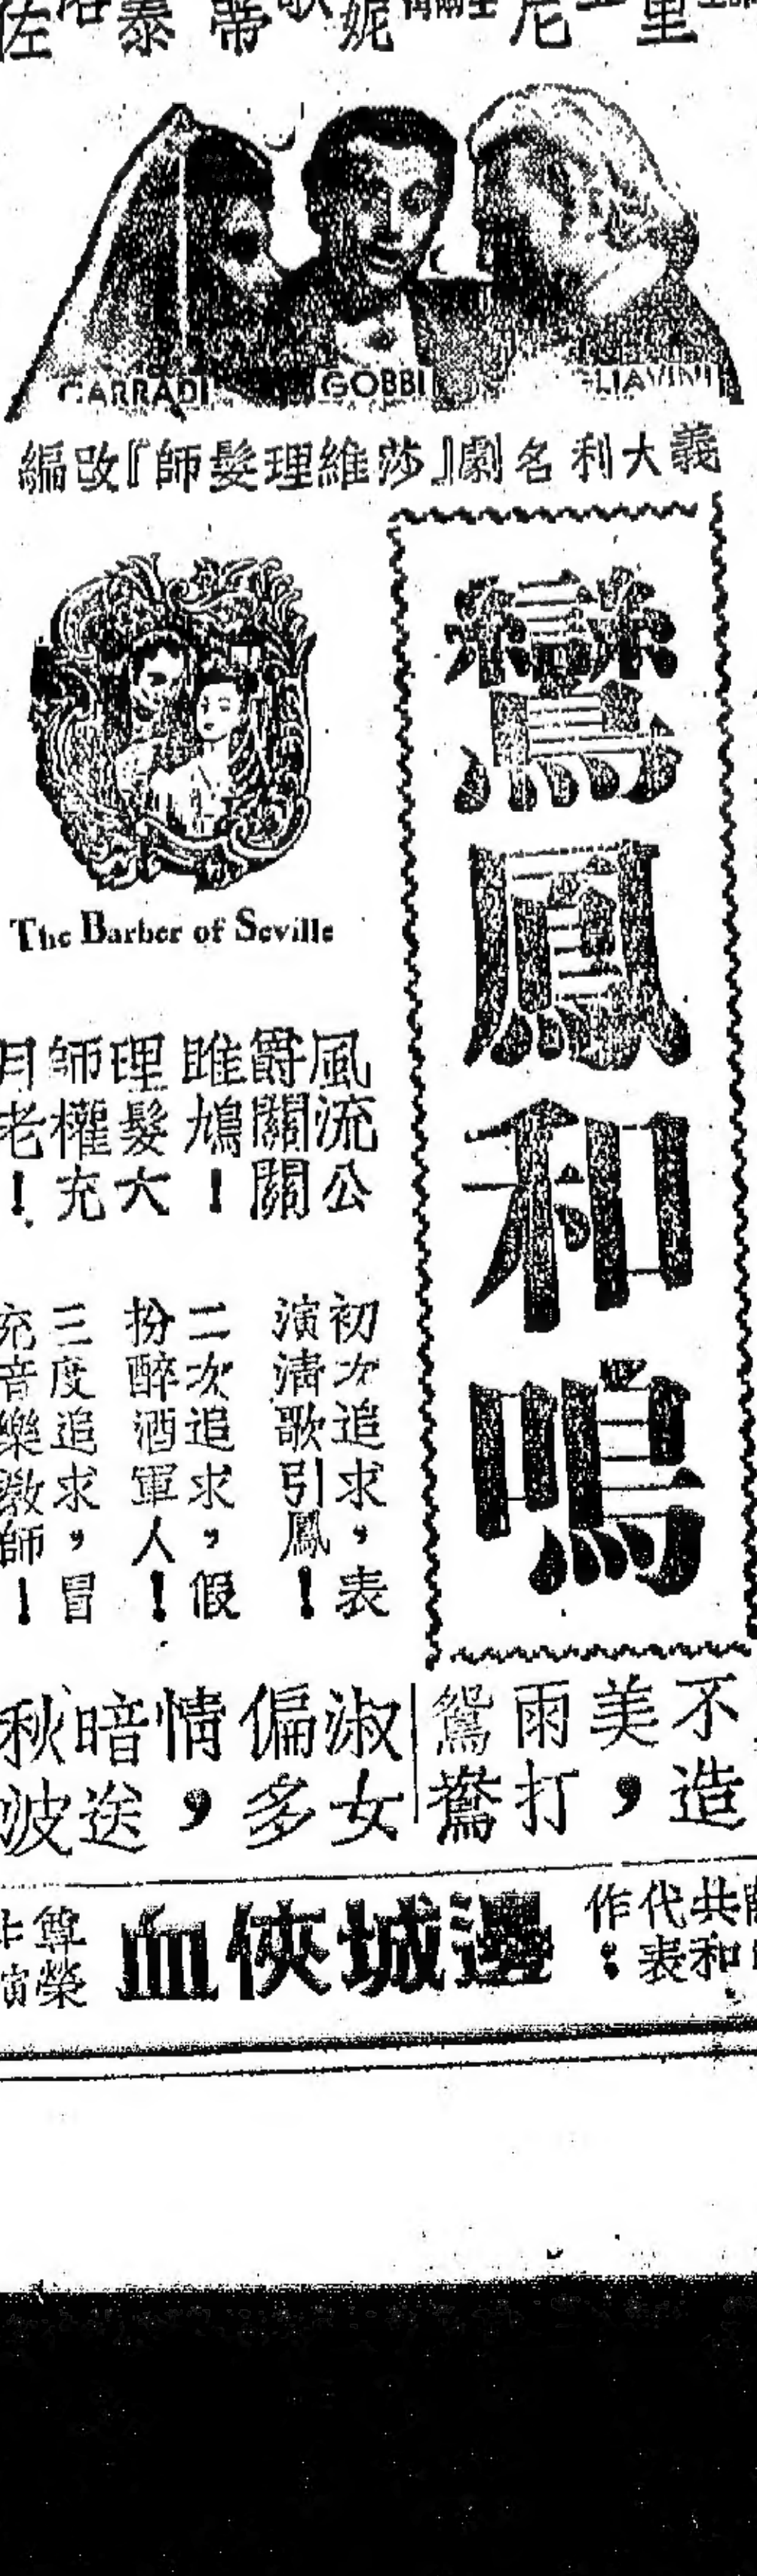 佐 泰 蒂 妮 尼 里
CARRADI GOBBI LIAVINI
義大利名劇『莎維理髮師』改編
鸞鳳和鳴
The Barber of Seville
風流公
爵關關
雎鳩！
理髮大
師權充
月老！
初次追求，表
演淸歌引鳳！
二次追求，假
扮醉酒軍人！
三度追求，冒
充音樂敎師！
不造
美，
雨打
鴛鴦
淑女
偏多
情，
暗送
秋波
共和
代表
作：
邊城俠血
尊榮